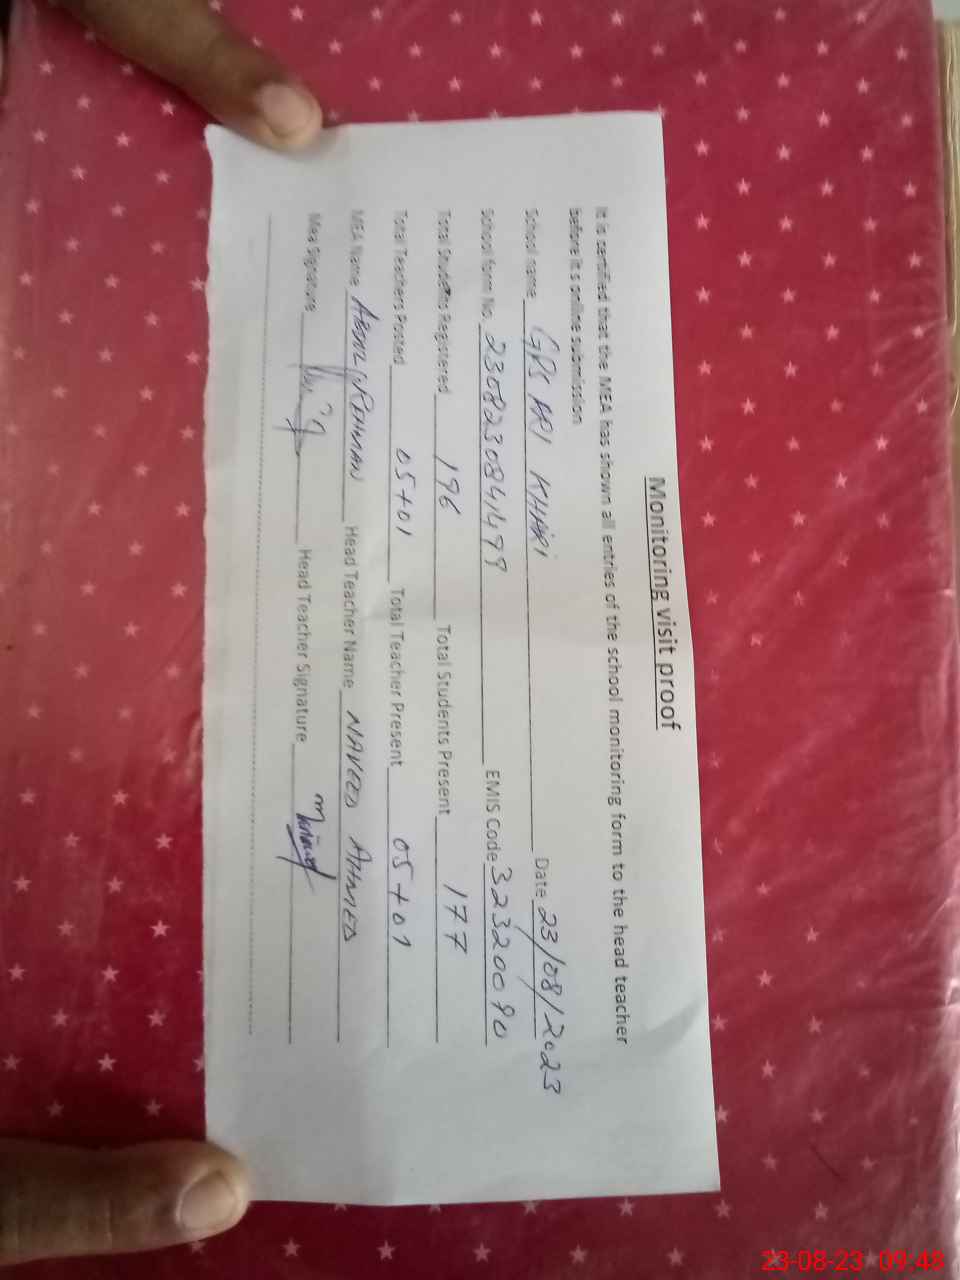 Monitoring visit proof
It is certified that the MEA has shown all entries of the school monitoring form to the head teacher
before it s online submission
School name GPS ARI KHARI Date 23/08/2023
School form No. 2308230841499 EMIS Code 32320090
Total Students Registered 196 Total Students Present 177
Total Teachers Posted 05+01 Total Teacher Present 05+01
MEA Name ABDUL REHMAN Head Teacher Name NAVEED AHMED
Mea Signature Head Teacher Signature
23-08-23 09:48